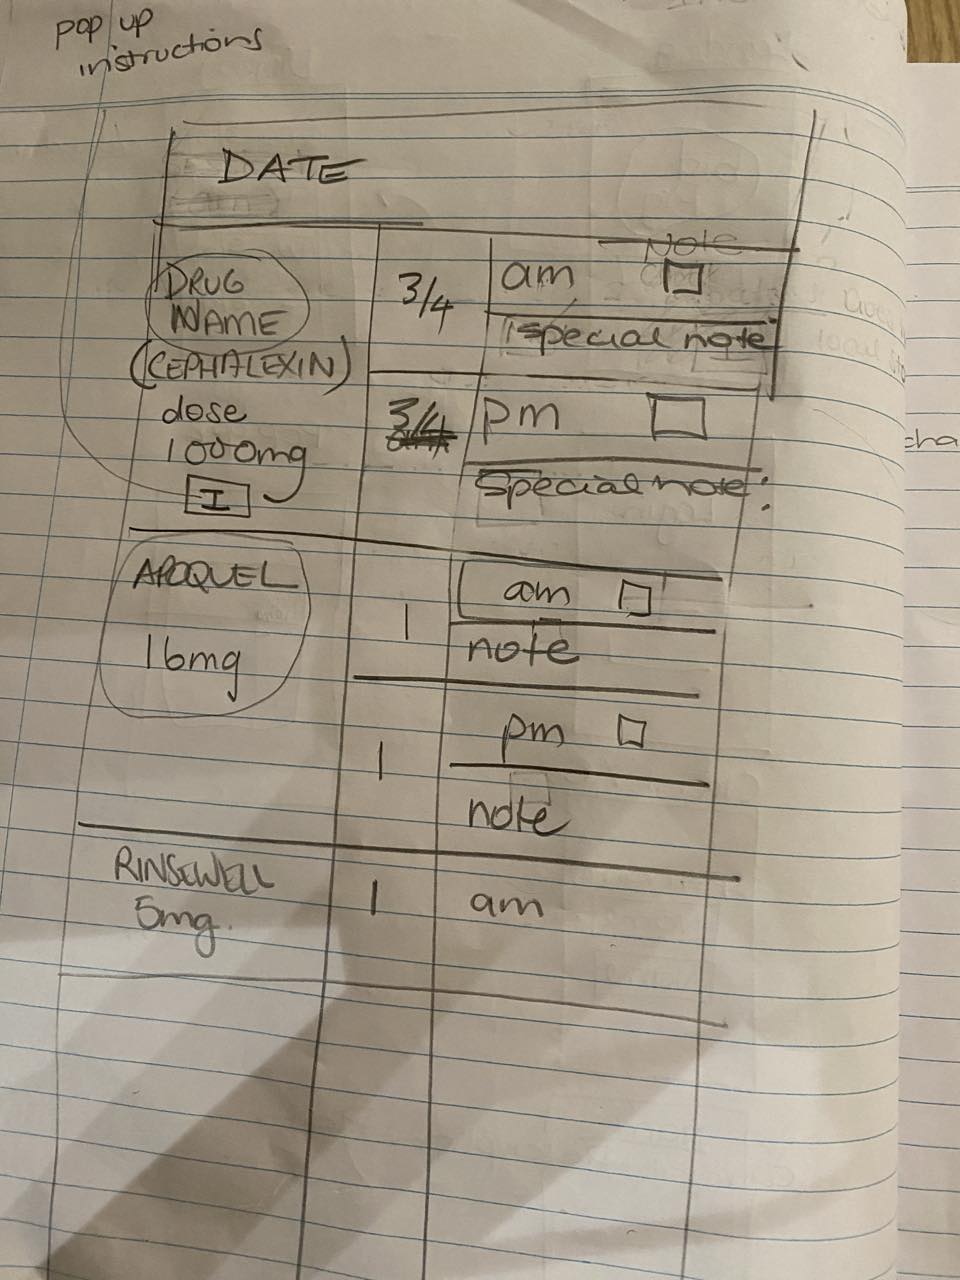 pop up
instructions
DATE
Note
DRUG
NAME
(CEPHALEXIN)
dose
1000mg
I
3/4
am
special note:
3/4
pm
Special note:
APOQUEL
16mg
1
am
note
1
pm
note
RINSEWELL
5mg.
1
am
cha